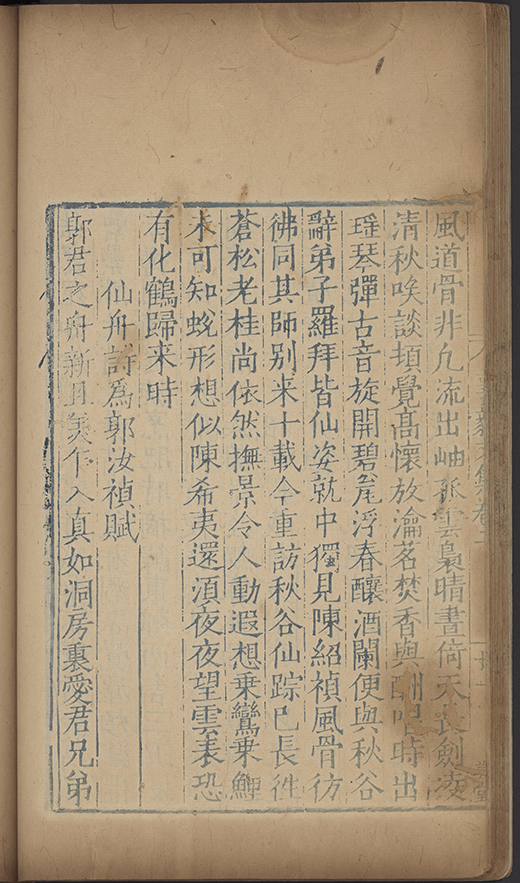 風道骨非凡流出岫孤雲裊晴晝倚天長劍凌
清秋唉談頃覺髙懷放瀹茗焚香與酬唱時出
瑶琴彈古音旋開碧瓮浮春釀酒闌便與秋谷
辭弟子羅拜皆仙姿就中獨見陳紹禎風骨彷
彿同其師别来十載今重訪秋谷仙踪已長徃
蒼松老桂尚依然撫景令人動遐想乗鸞乗鯉
未可知蛻形想似陳希夷還湏夜夜望雲表恐
有化鶴歸来時
仙舟詩爲郭汝禎賦
郭君之舟新且美乍入真如洞房裏愛君兄弟